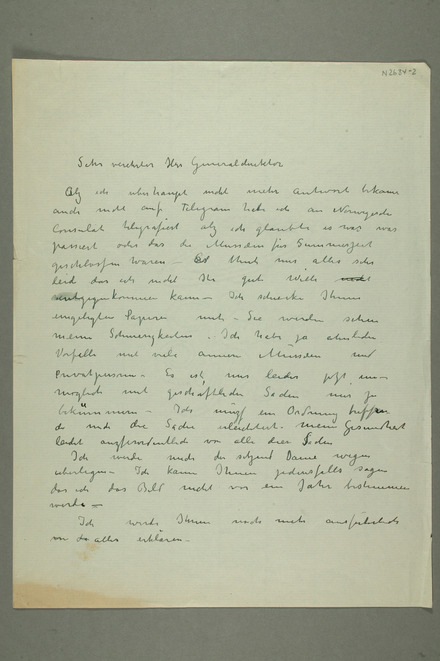 N 2634-2
Sehr verehrter Herr Generaldirektor
Als ich überhaupt nicht mehr Antwort bekam
auch nicht auf Telegram habe ich an Norwegische
Consulat telegrafiert als ich glaubte es was was
passiert oder das die Museum für Sommerzeit
geschlossen waren – Es thut mir alles sehr
leid das ich nicht Ihr gute Wille
entgegenkommen kann – Ich schicke Ihnen
Papiere mit – Sie werden sehen
meine Schwierigkeiten. Ich habe ja ähnliche
Vorfälle mit viele andere Museum und
Privatpersonen – Es ist mir leider jetzt un-
möglich mit geschäftliche Sachen mir zu
bekümmern – Ich muss ein Ordnung treffen
die mich die Sachen erleichtert – meine Gesundheit
leidet ausserordentlich von alle diese Sachen
Ich werde mich die Dame wegen
überlegen – Ich kann Ihnen jedenfalls sagen
das ich das Bild nicht vor ein Jahr bestimmen
werde –
Ich werde Ihnen noch mehr ausführlich
von das alles erklären –